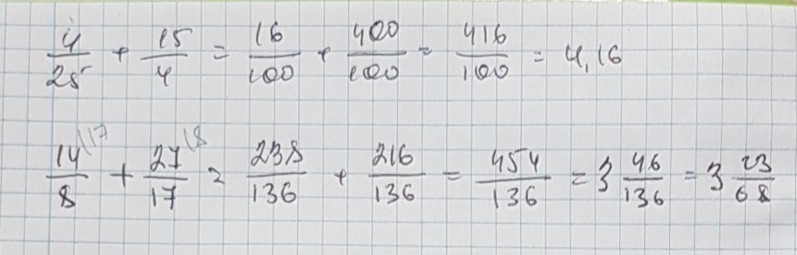 4/25 + 15/4 = 16/100 + 400/100 = 416/100 = 4,16
14/8 \17 + 27/17 \8 = 238/136 + 216/136 = 454/136 = 3 46/136 = 3 23/68